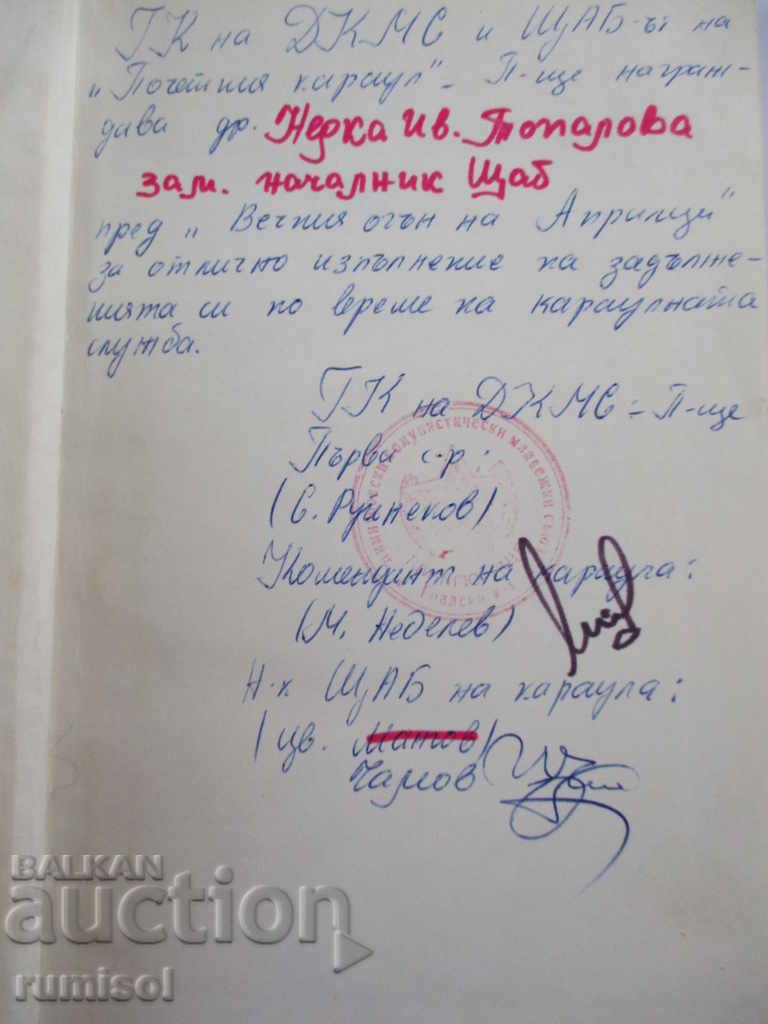 ГК на ДКМС и ЩАБ-ът на
„Почетния караул" - П-ще награж-
дава др. Недка Ив. Топалова
зам. началник Щаб
пред „Вечния огън на Априлци"
за отлично изпълнение на задълже-
нията си по време на караулната
служба.
ГК на ДКМС - П-ще
Първи с-р:
(С. Рушнеков)
Комендант на караула:
(М. Неделев)
Н-к ЩАБ на караула:
(Цв. Матов)
Чамов
BALKAN
auction
rumisol